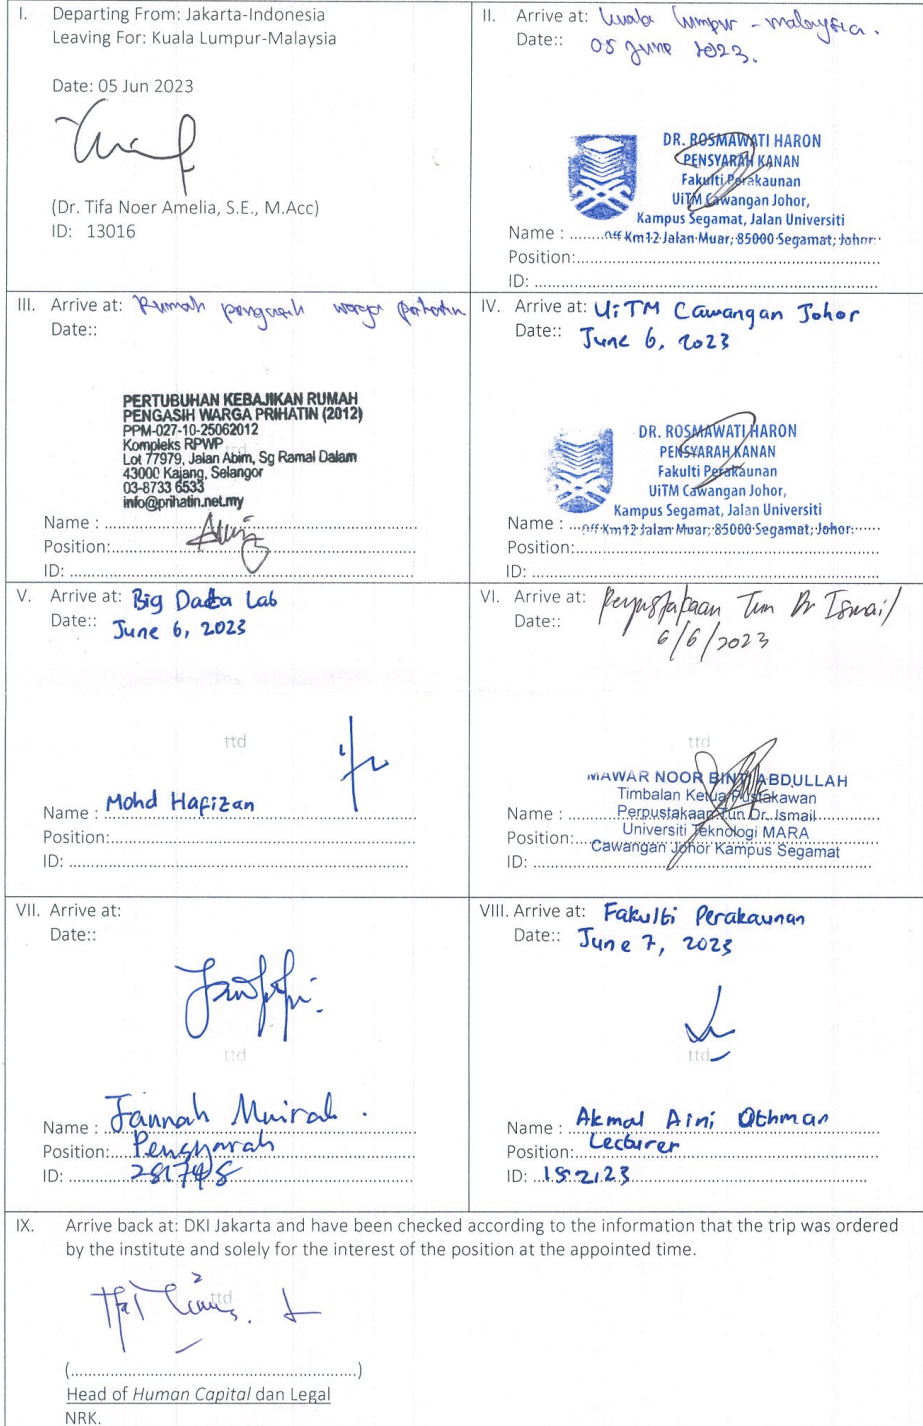 I. Departing From: Jakarta-Indonesia
Leaving For: Kuala Lumpur-Malaysia
Date: 05 Jun 2023
(Dr. Tifa Noer Amelia, S.E., M.Acc)
ID: 13016
II. Arrive at: Kuala Lumpur - Malaysia.
Date:: 05 June 2023.
DR. ROSMAWATI HARON
PENSYARAH KANAN
Fakulti Perakaunan
UiTM Cawangan Johor,
Kampus Segamat, Jalan Universiti
Name : Off Km12 Jalan Muar, 85000 Segamat, Johor.
Position:
ID:
III. Arrive at: Rumah pengasih warga prihatin
Date::
PERTUBUHAN KEBAJIKAN RUMAH
PENGASIH WARGA PRIHATIN (2012)
PPM-027-10-25062012
Kompleks RPWP
Lot 77979, Jalan Abim, Sg Ramal Dalam
43000 Kajang, Selangor
03-8733 6533
info@prihatin.net.my
Name :
Position:
ID:
IV. Arrive at: UiTM Cawangan Johor
Date:: June 6, 2023
DR. ROSMAWATI HARON
PENSYARAH KANAN
Fakulti Perakaunan
UiTM Cawangan Johor,
Kampus Segamat, Jalan Universiti
Name : Off Km12 Jalan Muar, 85000 Segamat, Johor.
Position:
ID:
V. Arrive at: Big Data Lab
Date:: June 6, 2023
ttd
Name : Mohd Hafizan
Position:
ID:
VI. Arrive at: Perpustakaan Tun Dr Ismail
Date:: 6/6/2023
ttd
MAWAR NOOR BINTI ABDULLAH
Timbalan Ketua Pustakawan
Name : Perpustakaan Tun Dr. Ismail
Position: Universiti Teknologi MARA
Cawangan Johor Kampus Segamat
ID:
VII. Arrive at:
Date::
ttd
Name : Jannah Munirah .
Position: Pensyarah
ID: 281748
VIII. Arrive at: Fakulti Perakaunan
Date:: June 7, 2023
ttd
Name : Akmal Aini Othman
Position: Lecturer
ID: 152123
IX. Arrive back at: DKI Jakarta and have been checked according to the information that the trip was ordered
by the institute and solely for the interest of the position at the appointed time.
ttd
(....................................................)
Head of Human Capital dan Legal
NRK.